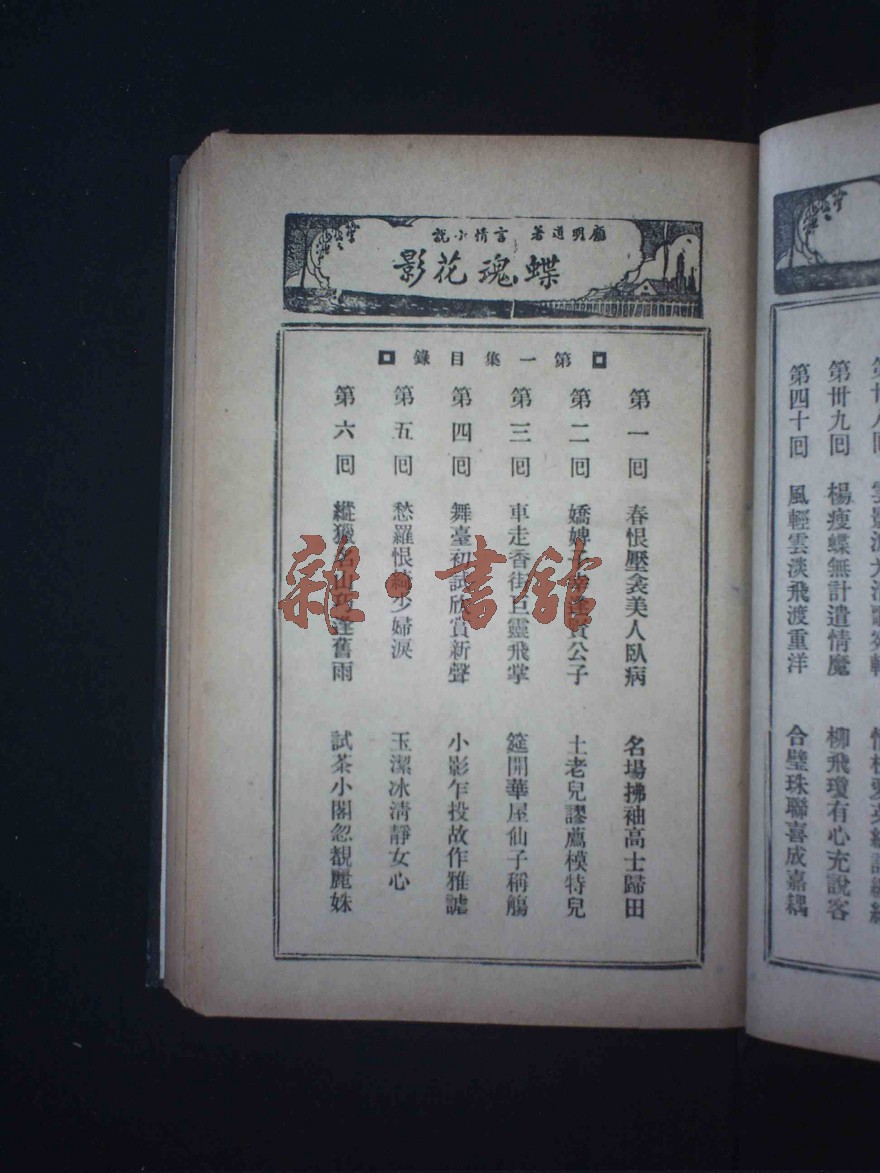 顧明道著 言情小說
蝶魂花影
第一集目錄
第一回 春恨壓衾美人臥病 名場拂袖高士歸田
第二回 嬌婢 逢賢公子 土老兒謬薦模特兒
第三回 車走香街巨靈飛掌 筵開華屋仙子稱觴
第四回 舞臺初試欣賞新聲 小影乍投故作雅謔
第五回 愁羅恨綺少婦淚 玉潔冰清靜女心
第六回 縱獵名山巧逢舊雨 試茶小閣忽覩麗姝
第卅九回 楊瘦蝶無計遣情魔 柳飛瓊有心充說客
第四十回 風輕雲淡飛渡重洋 合璧珠聯喜成嘉耦
雜·書館